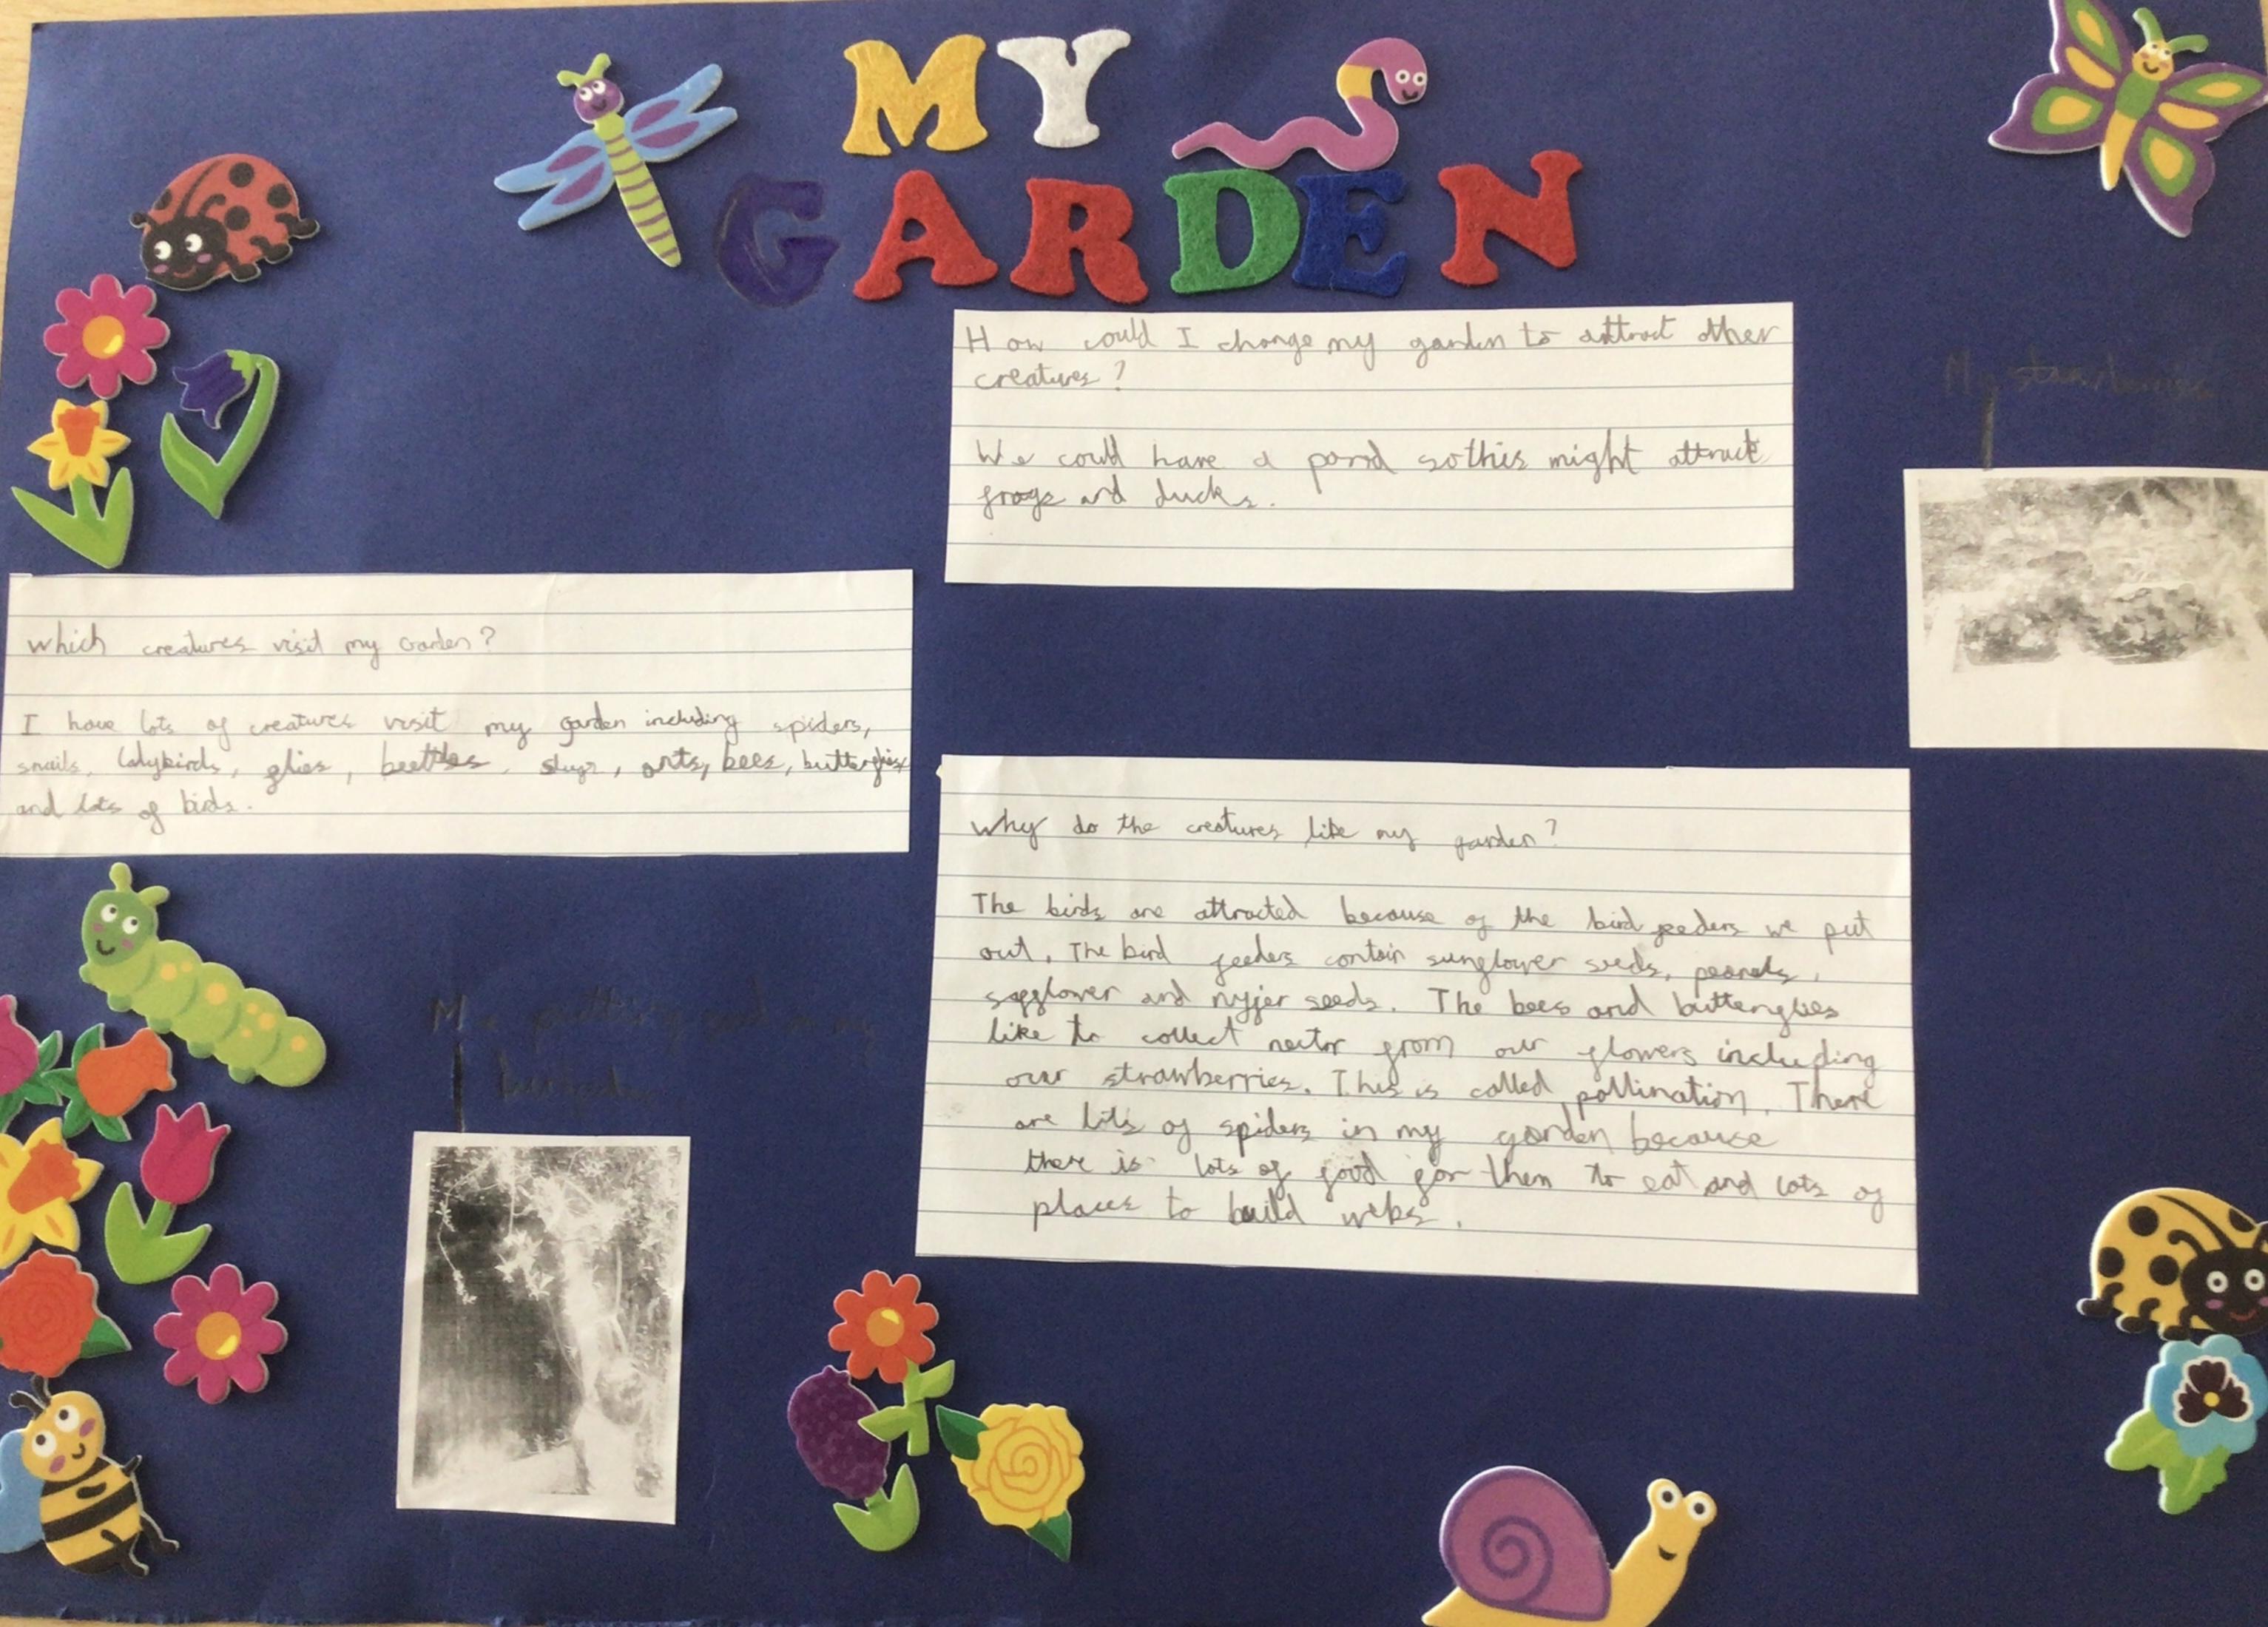 MY
GARDEN
How could I change my garden to attract other
creatures?
We could have a pond sothis might attract
frogs and ducks.
My strawberries
which creatures visit my Garden?
I have lots of creatures visit my garden including spiders,
snails, ladybirds, flies, beettles, slugs, ants, bees, butterflies
and lots of birds.
Why do the creatures like my garden?
The birds are attracted because of the bird feeders we put
out. The bird feeders contain sunflower seeds, peanuts,
safflower and nyjer seeds. The bees and butterflies
like to collect nectar from our flowers including
our strawberries. This is called pollination. There
are lots of spiders in my garden because
there is lots of food for them to eat and lots of
places to build webs.